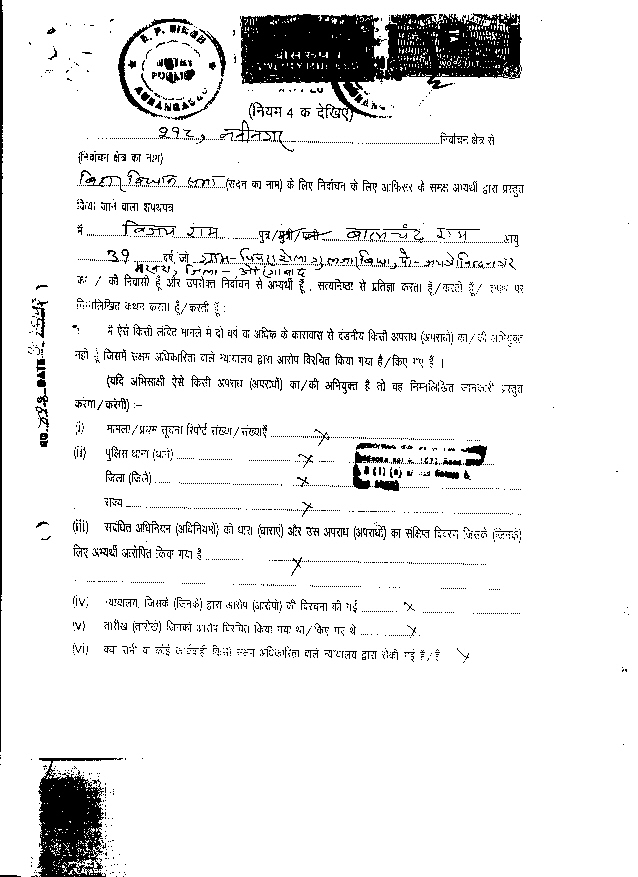 R. P. SINGH
NOTRY
PUBLIC
AURANGABAD
(नियम 4 क देखिए)
२१८, नवीनगर निर्वाचन क्षेत्र से
(निर्वाचन क्षेत्र का नाम)
बिहार विधान सभा (सदन का नाम) के लिए निर्वाचन के लिए आफिसर के समक्ष अभ्यर्थी द्वारा प्रस्तुत
किया जाने वाला शपथपत्र
मैं विजय राम पुत्र/पुत्री/पत्नी बालचंद राम आयु
39 वर्ष, जो ग्राम-
जिला - औरंगाबाद
का / की निवासी हूँ और उपरोक्त निर्वाचन से अभ्यर्थी हूँ , सत्यनिष्ठा से प्रतिज्ञा करता हूँ/करती हूँ/ शपथ पर
निम्नलिखित कथन करता हूँ/करती हूँ :
मैं ऐसे किसी लंबित मामले में दो वर्ष या अधिक के कारावास से दंडनीय किसी अपराध (अपराधों) का/की अभियुक्त
नहीं हूँ जिसमें सक्षम अधिकारिता वाले न्यायालय द्वारा आरोप विरचित किया गया है/किए गए हैं ।
(यदि अभिसाक्षी ऐसे किसी अपराध (अपराधों) का/की अभियुक्त है तो वह निम्नलिखित जानकारी प्रस्तुत
करेगा/करेगी) :-
(i) मामला/प्रथम सूचना रिपोर्ट संख्या/संख्याएँ ×
(ii) पुलिस थाना (थाने) ×
जिला (जिले) ×
राज्य ×
(iii) संबंधित अधिनियम (अधिनियमों) की धारा (धाराएं) और उस अपराध (अपराधों) का संक्षिप्त विवरण जिसके (जिनके)
लिए अभ्यर्थी आरोपित किया गया है ×
(iv) न्यायालय, जिसके (जिनके) द्वारा आरोप (आरोपों) की विरचना की गई ×
(v) तारीख (तारीखें) जिनको आरोप विरचित किया गया था/किए गए थे ×
(vi) क्या सभी या कोई कार्यवाही किसी सक्षम अधिकारिता वाले न्यायालय द्वारा रोकी गई है/हैं ×